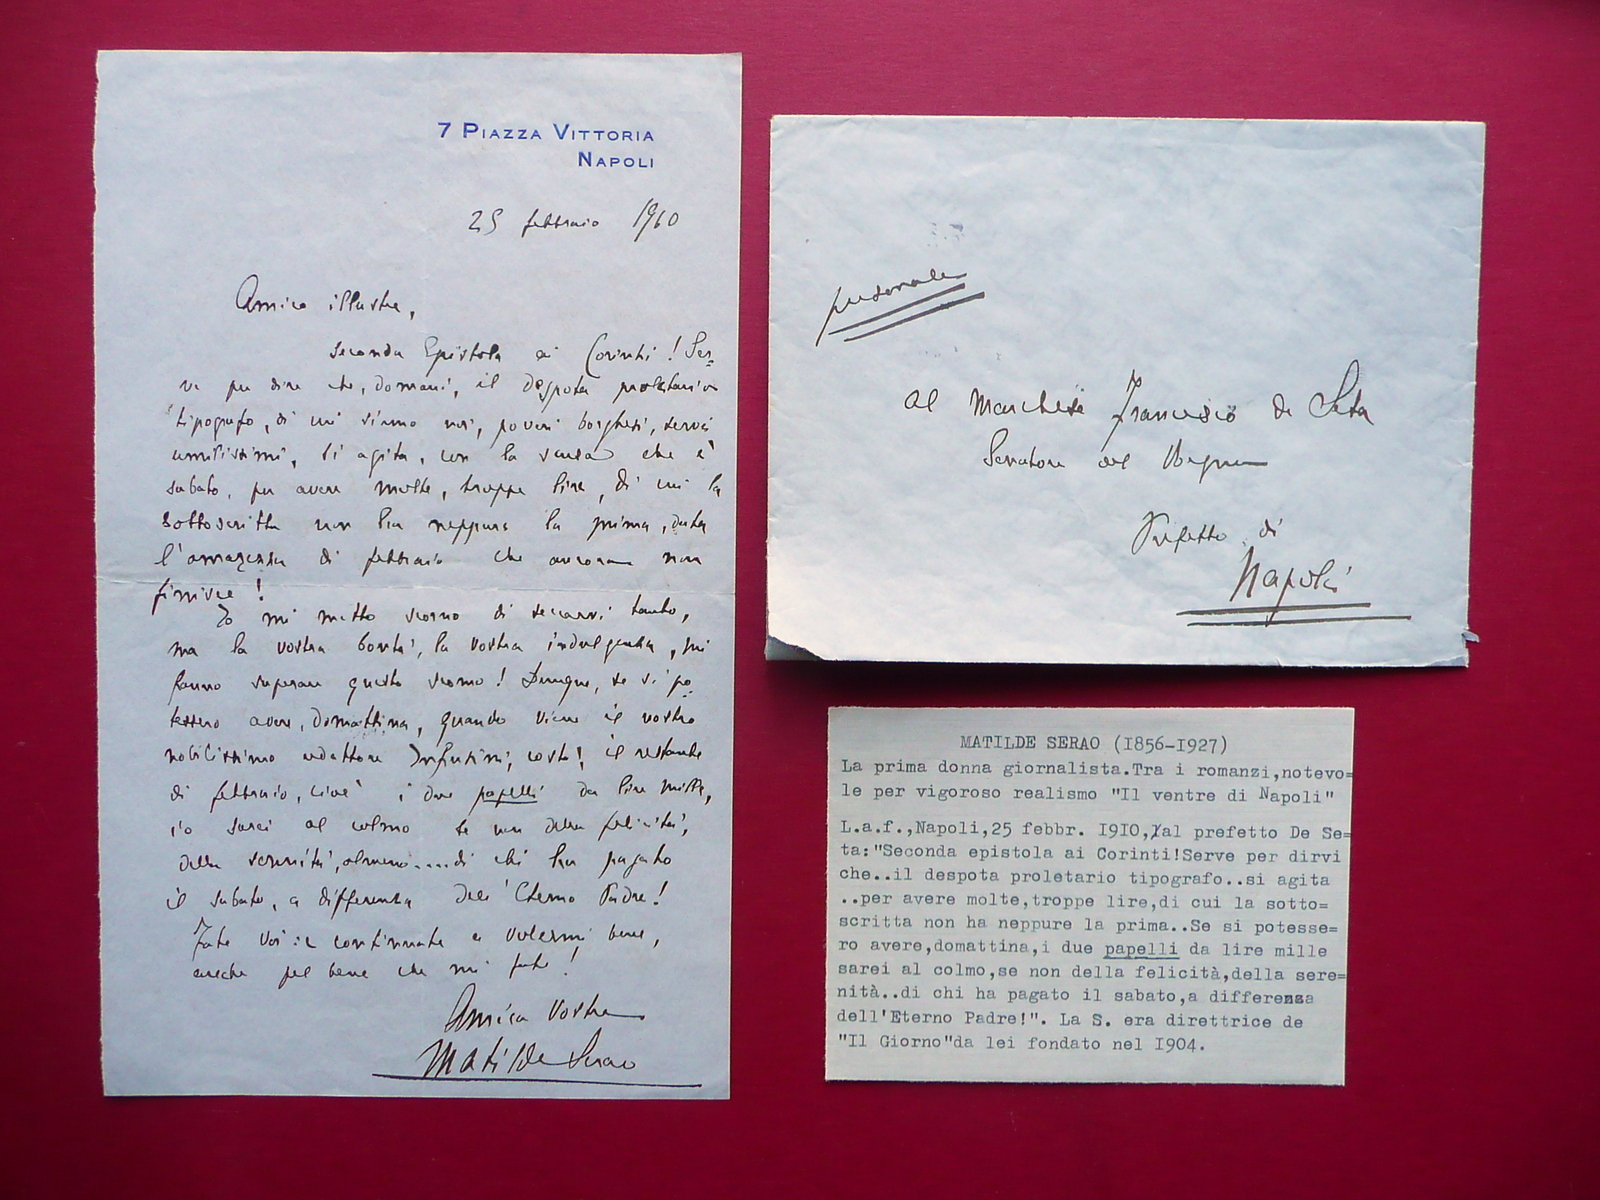 7 PIAZZA VITTORIA
NAPOLI
25 febbraio 1910
Amico illustre,
Seconda Epistola ai Corinti! Ser=
ve per dire che, domani, il despota proletario
tipografo, di cui siamo noi, poveri borghesi, servi
umilissimi, si agita, con la scusa che è
sabato, per avere molte, troppe lire, di cui la
sottoscritta non ha neppure la prima, data
l'amarezza di febbraio che ancora non
finisce!
Io mi metto scorno di seccarvi tanto,
ma la vostra bontà, la vostra indulgenza, mi
fanno superare questo scorno! Dunque, se si po=
tessero avere, domattina, quando viene il vostro
nobilissimo redattore costà, il restante
di febbraio, cioè i due papelli da lire mille,
io sarei al colmo se non della felicità,
della serenità, almeno....di chi ha pagato
il sabato, a differenza dell'Eterno Padre!
Fate voi e continuate a volermi bene,
anche pel bene che mi fate!
Amica Vostra
Matilde Serao
personale
Al Marchese Francesco de Seta
Senatore del Regno
Prefetto di
Napoli
MATILDE SERAO (1856-1927)
La prima donna giornalista.Tra i romanzi,notevo=
le per vigoroso realismo "Il ventre di Napoli"
L.a.f.,Napoli,25 febbr. 1910,al prefetto De Se=
ta:"Seconda epistola ai Corinti!Serve per dirvi
che..il despota proletario tipografo..si agita
..per avere molte,troppe lire,di cui la sotto=
scritta non ha neppure la prima..Se si potesse=
ro avere,domattina,i due papelli da lire mille
sarei al colmo,se non della felicità,della sere=
nità..di chi ha pagato il sabato,a differenza
dell'Eterno Padre!". La S. era direttrice de
"Il Giorno"da lei fondato nel 1904.